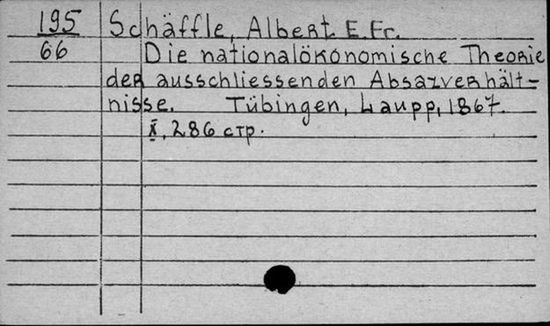 195 Schäffle, Albert E. Fr.
66 Die nationalökonomische Theorie
der ausschliessenden Absazverhält-
nisse. Tübingen, Laupp, 1867.
X, 286 стр.